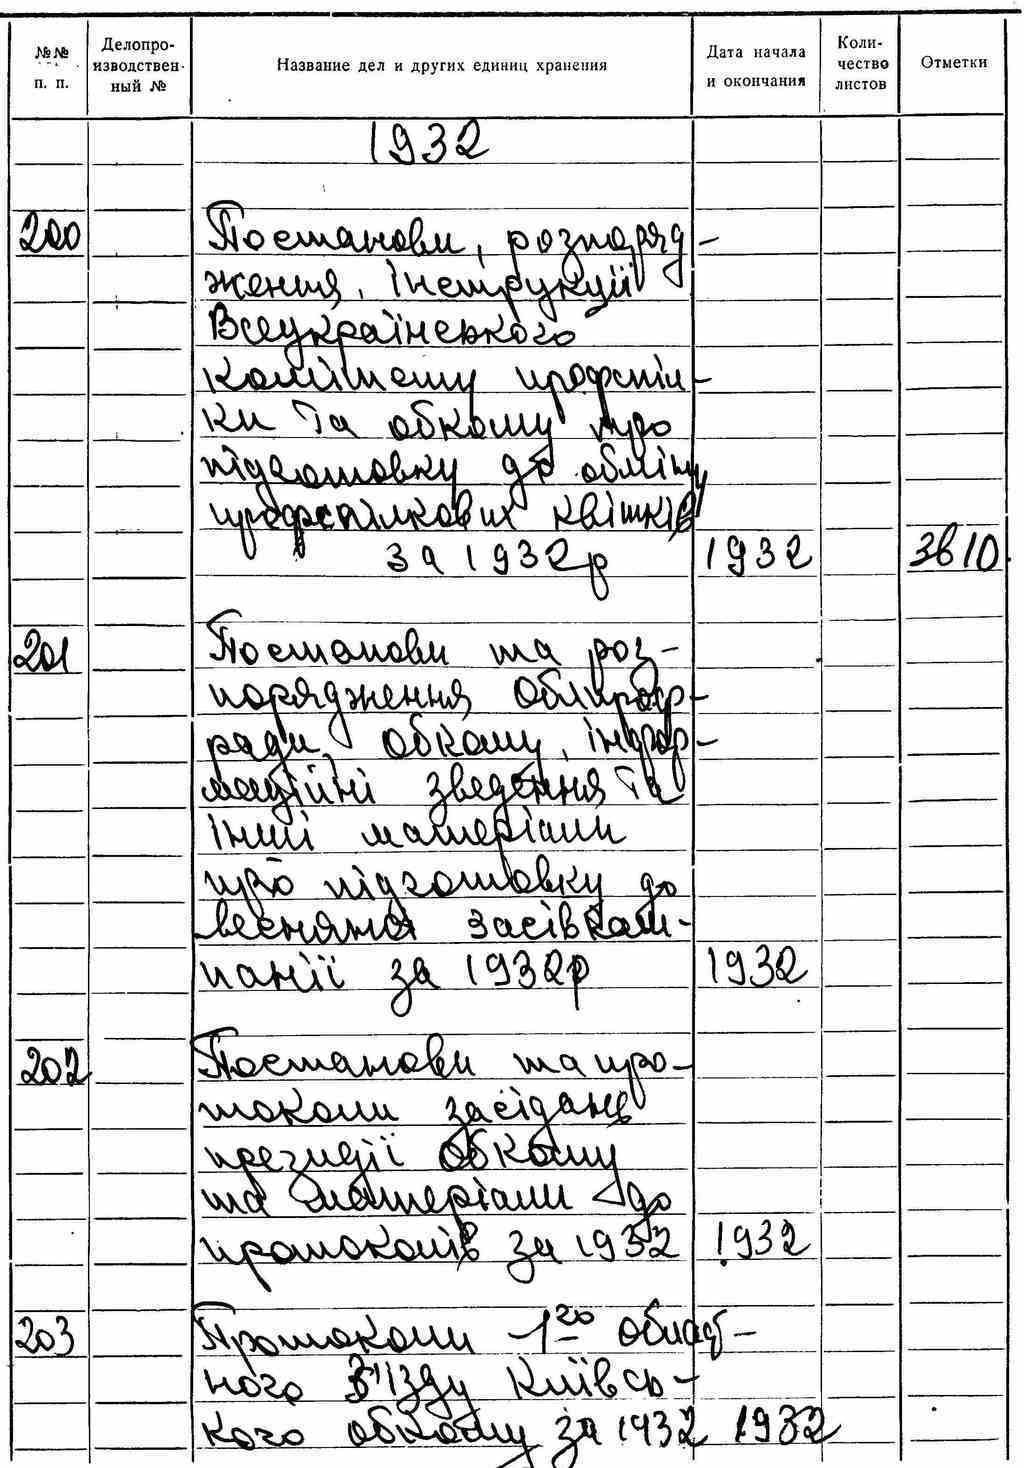 №№ п. п.
Делопро-
изводствен-
ный №
Название дел и других единиц хранения
Дата начала
и окончания
Коли-
чество
листов
Отметки
1932
200
Постанови, розпоряд-
ження, інструкції
Всеукраїнського
комітету профспіл-
ки та обкому про
підготовку до обміну
профспілкових квітків
за 1932р
1932
Зв10
201
Постанови та роз-
порядження облпроф-
ради, обкому, інфор-
маційні зведення та
інші матеріали
про підготовку до
весняної засівкам-
панії за 1932р
1932
202
Постанови та про-
токоли засідань
президії обкому
та матеріали до
протоколів за 1932
1932
203
Протоколи 1го облас-
ного з'їзду Київсь-
кого обкому за 1932
1932